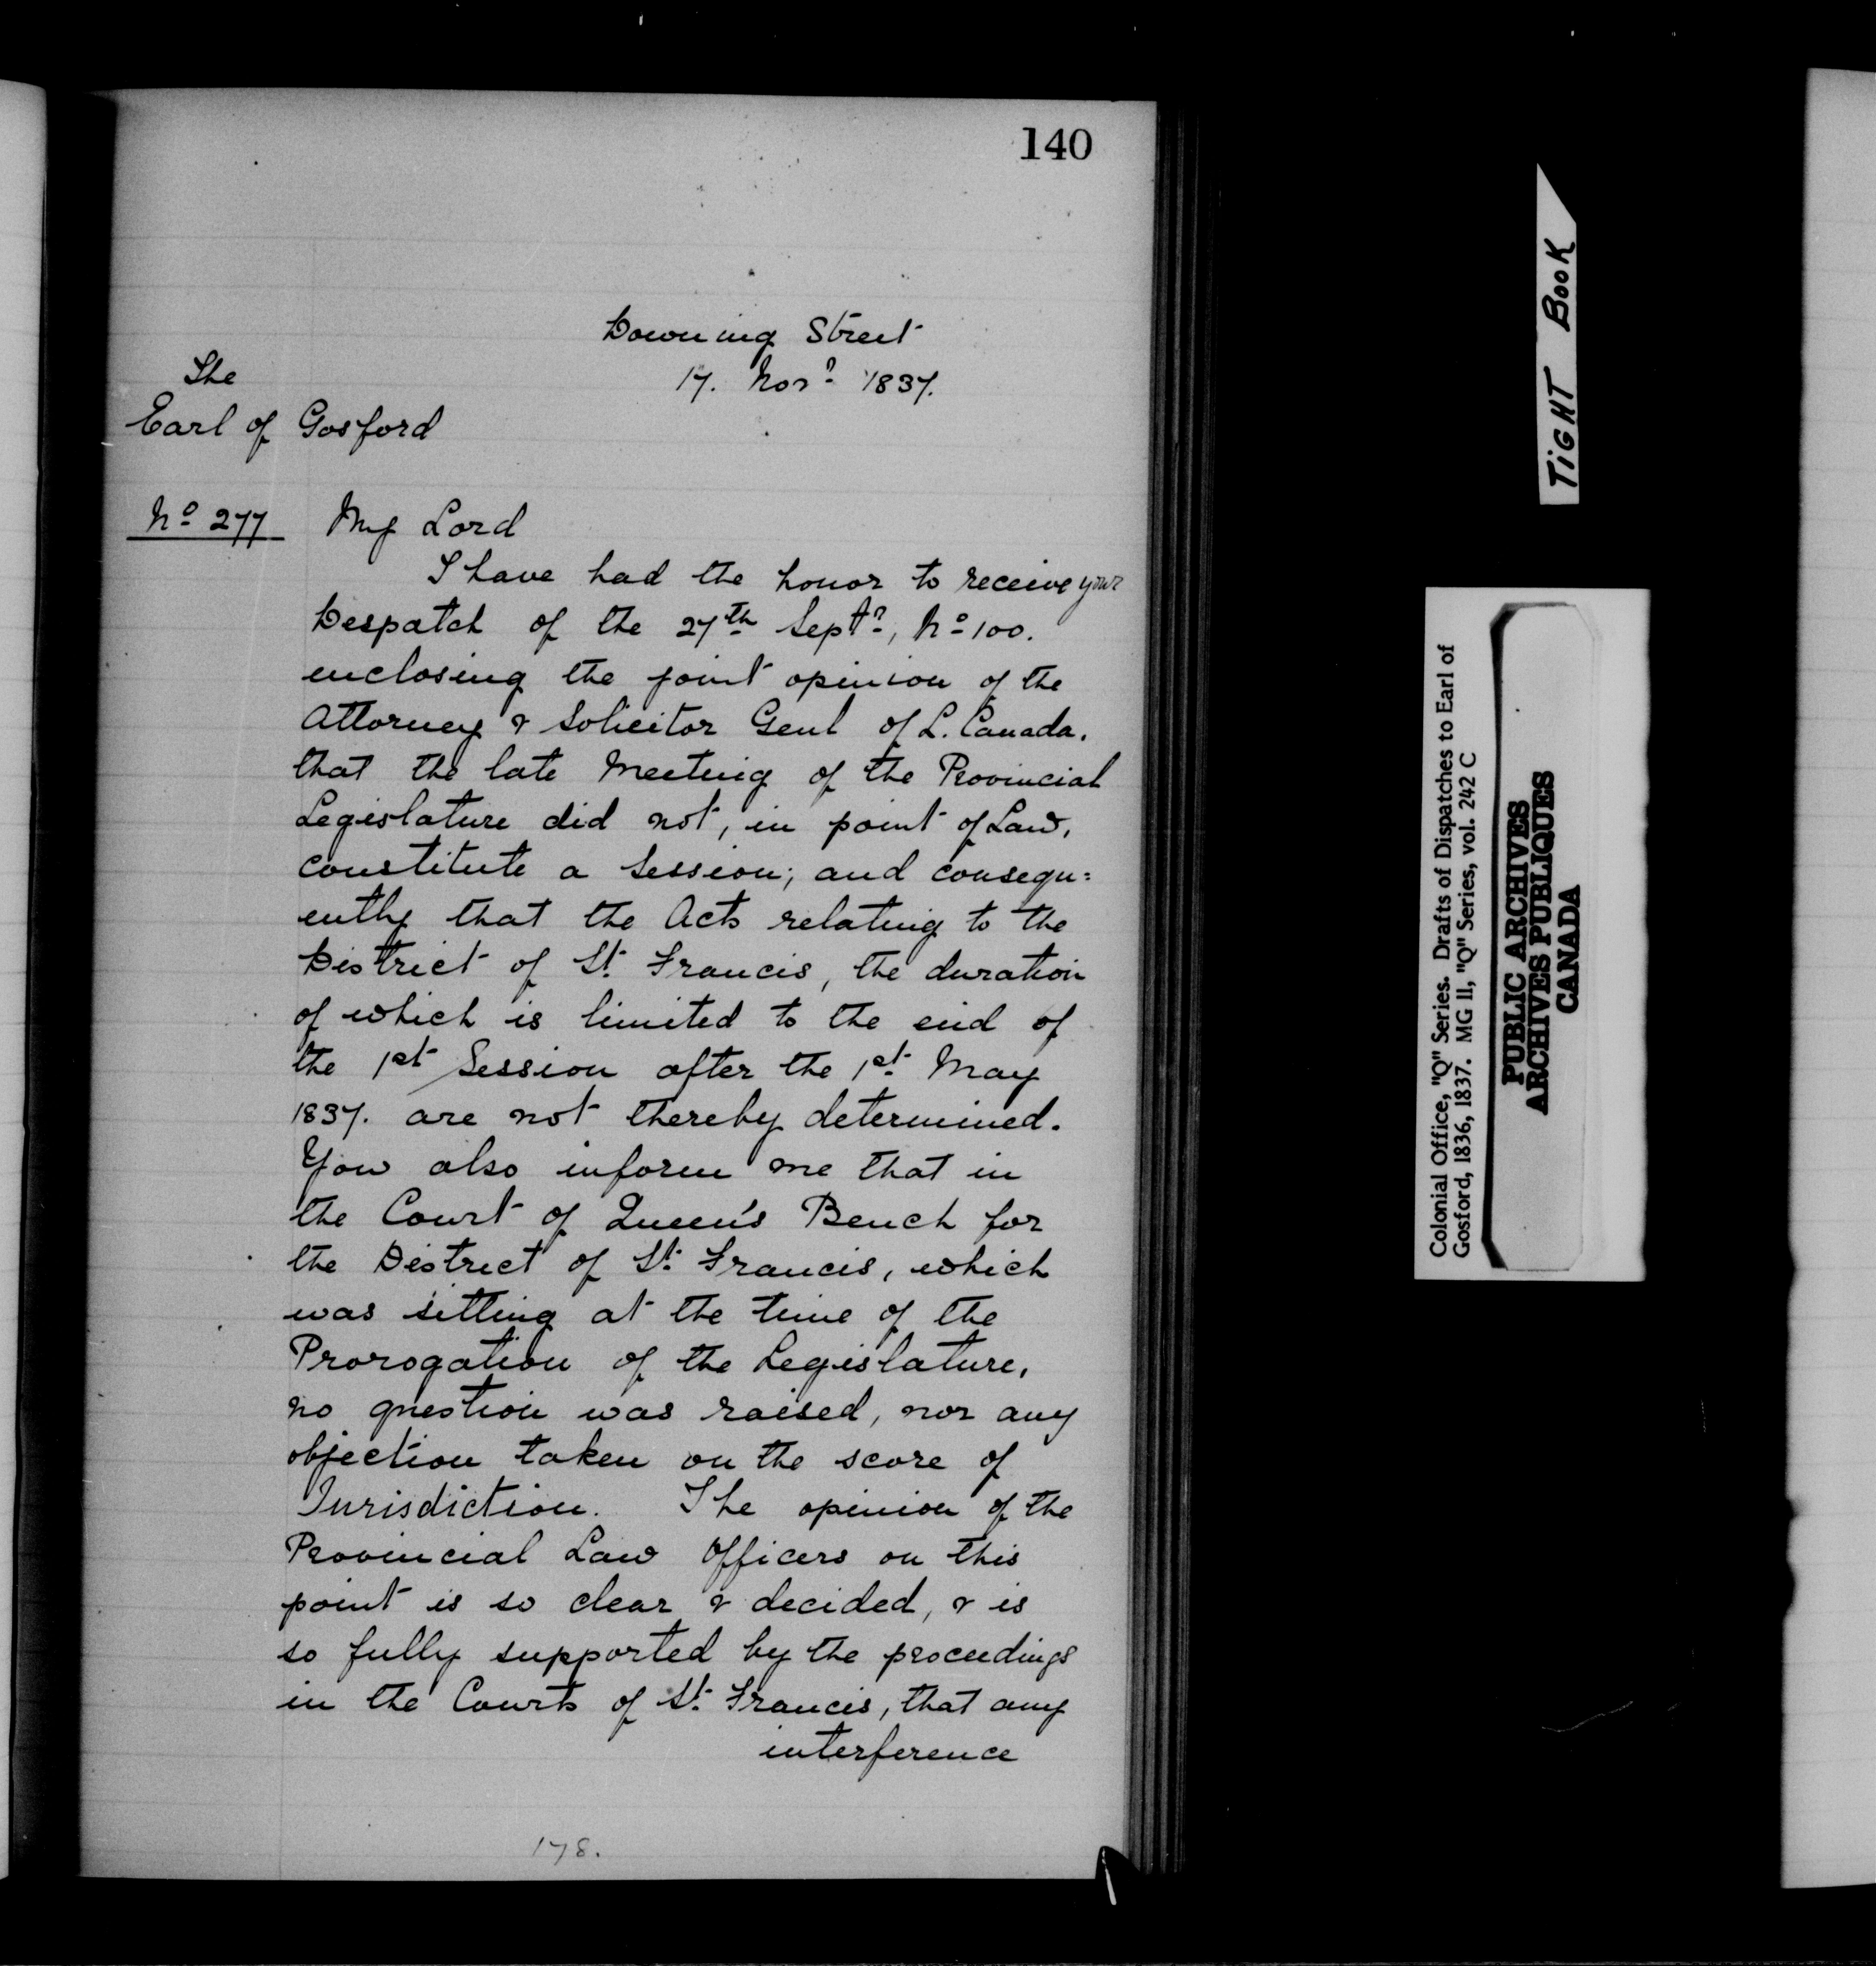 140
Downing Street
17. Novr. 1837.
The
Earl of Gosford
No 277
My Lord
I have had the honor to receive your
Despatch of the 27th Septr., No 100.
enclosing the joint opinion of the
Attorney & Solicitor Genl of L. Canada.
that the late Meeting of the Provincial
Legislature did not, in point of Law,
constitute a Session; and consequ=
ently that the Acts relating to the
District of St. Francis, the duration
of which is limited to the end of
the 1st Session after the 1st May
1837. are not thereby determined.
You also inform me that in
the Court of Queen's Bench for
the District of St. Francis, which
was sitting at the time of the
Prorogation of the Legislature,
no question was raised, nor any
objection taken on the score of
Jurisdiction. The opinion of the
Provincial Law Officers on this
point is so clear & decided, & is
so fully supported by the proceedings
in the Courts of St. Francis, that any
interference
178.
TIGHT BOOK
Colonial Office, "Q" Series. Drafts of Dispatches to Earl of
Gosford, 1836, 1837. MG 11, "Q" Series, vol. 242 C
PUBLIC ARCHIVES
ARCHIVES PUBLIQUES
CANADA